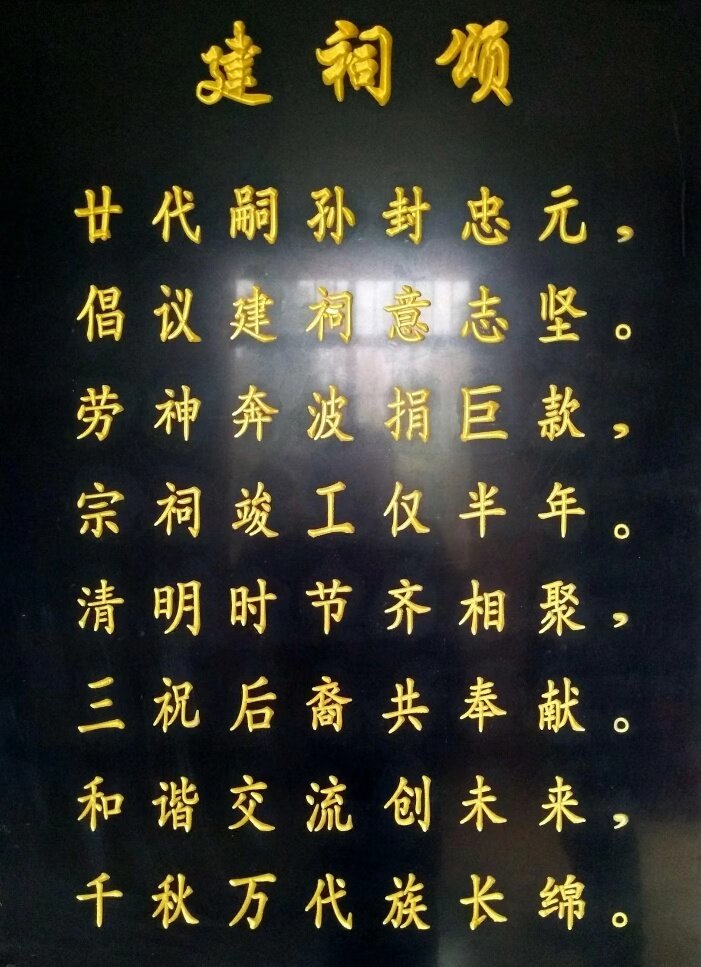 建祠颂
廿代嗣孙封忠元，
倡议建祠意志坚。
劳神奔波捐巨款，
宗祠竣工仅半年。
清明时节齐相聚，
三祝后裔共奉献。
和谐交流创未来，
千秋万代族长绵。